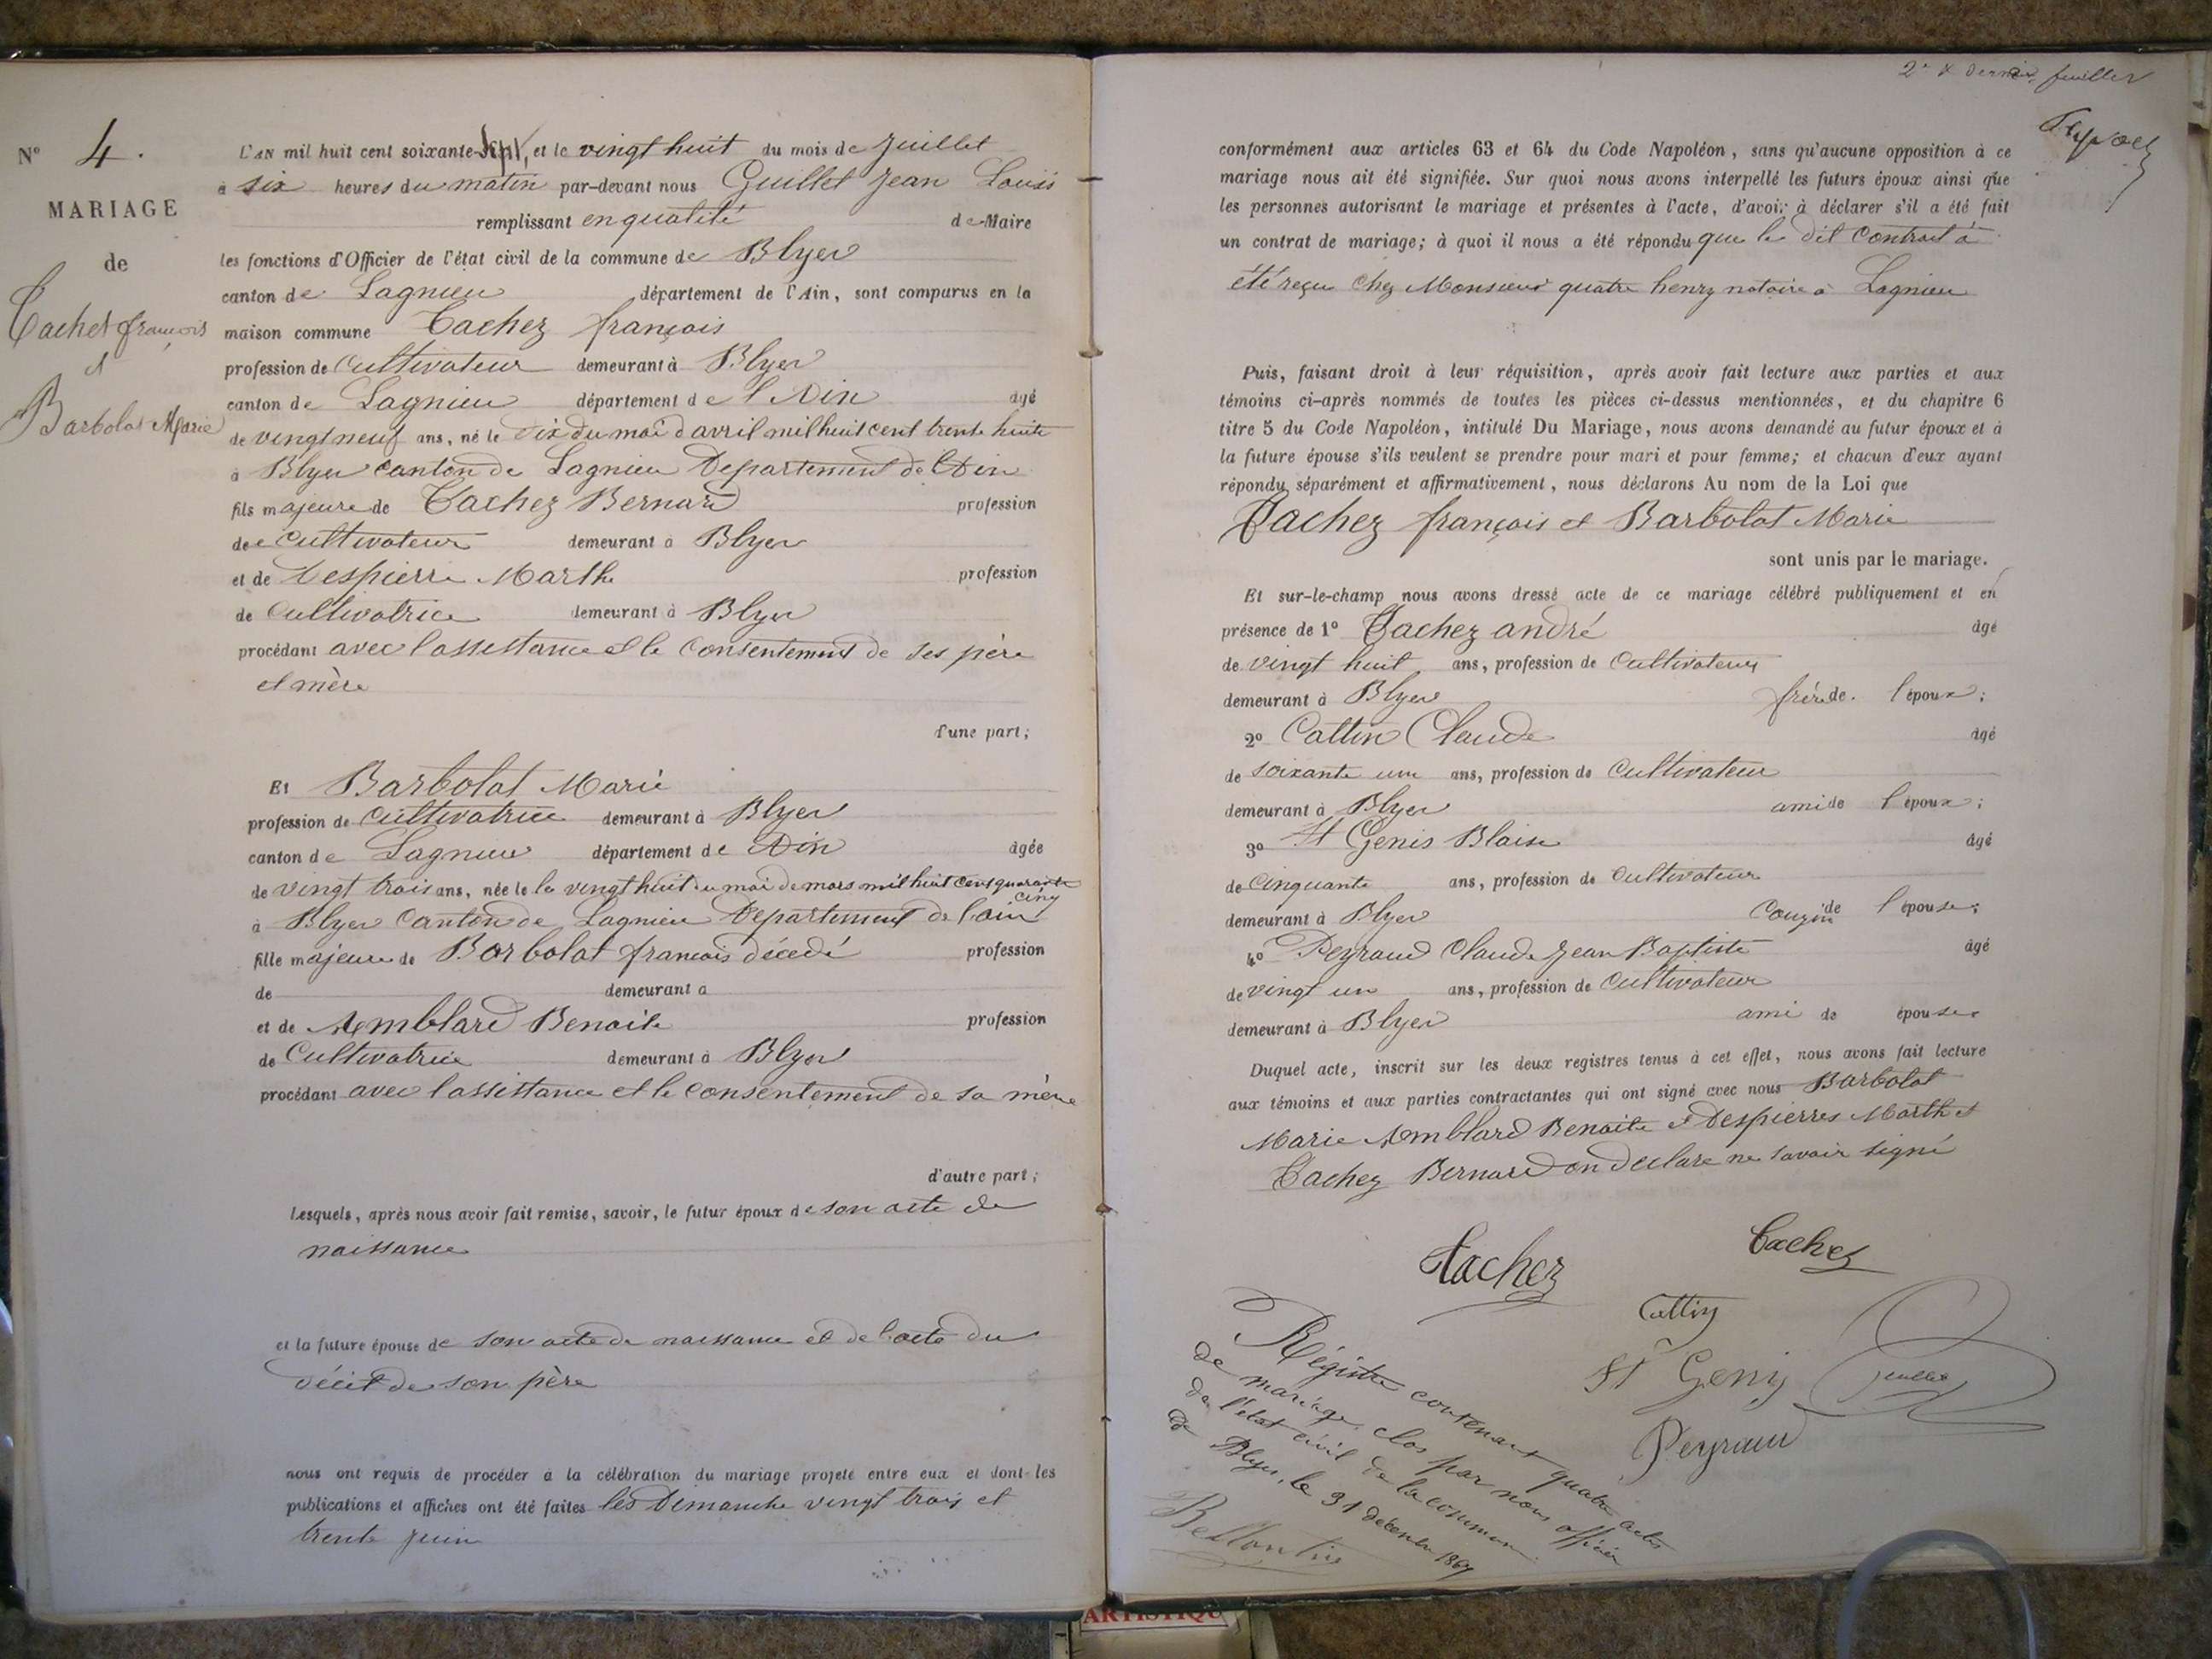 N° 4.
MARIAGE
de
Tachet françois
et
Barbolat Marie
L'AN mil huit cent soixante-sept, et le vingt huit du mois de Juillet
à six heures du matin par-devant nous Guillet Jean Louis
remplissant en qualité de Maire
les fonctions d'Officier de l'état civil de la commune de Blyes
canton de Lagnieu département de l'Ain, sont comparus en la
maison commune Tachez françois
profession de Cultivateur demeurant à Blyes
canton de Lagnieu département de l'Ain âgé
de vingt neuf ans, né le dix du moi d'avril mil huit cent trente huite
à Blyes canton de Lagnieu Departement de l'Ain
fils majeure de Tachez Bernard profession
de Cultivateur demeurant à Blyes
et de Despierre Marthe profession
de Cultivatrice demeurant à Blyes
procédant avec l'assistance et le Consentement de ses père
et mère
d'une part;
Et Barbolat Marie
profession de Cultivatrice demeurant à Blyes
canton de Lagnieu département de Ain âgée
de vingt trois ans, née le le vingt huit du moi de mars mil huit cent quarante
cinq
à Blyes Canton de Lagnieu Departement de l'ain
fille majeure de Barbolat francois décedé profession
de demeurant à
et de Remblard Benoite profession
de Cultivatrice demeurant à Blyes
procédant avec l'assistance et le consentement de sa mère
d'autre part;
Lesquels, après nous avoir fait remise, savoir, le futur époux de son acte de
naissance
et la future épouse de son acte de naissance et de l'acte du
décès de son père
nous ont requis de procéder à la célébration du mariage projeté entre eux et dont les
publications et affiches ont été faites les Dimanche vingt trois et
trente juin
2e & dernier feuillet
conformément aux articles 63 et 64 du Code Napoléon, sans qu'aucune opposition à ce
mariage nous ait été signifiée. Sur quoi nous avons interpellé les futurs époux ainsi que
les personnes autorisant le mariage et présentes à l'acte, d'avoir à déclarer s'il a été fait
un contrat de mariage; à quoi il nous a été répondu que le dit Contrat à
été reçu chez Monsieur quatre henry notaire à Lagnieu
Puis, faisant droit à leur réquisition, après avoir fait lecture aux parties et aux
témoins ci-après nommés de toutes les pièces ci-dessus mentionnées, et du chapitre 6
titre 5 du Code Napoléon, intitulé Du Mariage, nous avons demandé au futur époux et à
la future épouse s'ils veulent se prendre pour mari et pour femme; et chacun d'eux ayant
répondu séparément et affirmativement, nous déclarons Au nom de la Loi que
Tachez françois et Barbolat Marie
sont unis par le mariage.
Et sur-le-champ nous avons dressé acte de ce mariage célébré publiquement et en
présence de 1° Tachez andré âgé
de vingt huit ans, profession de Cultivateur
demeurant à Blyes frère de l'époux;
2° Cattin Claude âgé
de soixante un ans, profession de Cultivateur
demeurant à Blyes ami de l'époux;
3° St Genis Blaise âgé
de Cinquante ans, profession de Cultivateur
demeurant à Blyes Couzin de l'épouse;
4° Peyraud Claude Jean Baptiste âgé
de vingt un ans, profession de Cultivateur
demeurant à Blyes ami de épouse
Duquel acte, inscrit sur les deux registres tenus à cet effet, nous avons fait lecture
aux témoins et aux parties contractantes qui ont signé avec nous Barbolat
Marie Remblard Benoite et Despierres Marthe et
Tachez Bernard on declare ne savoir signé
Tachez
Tachez
Cattin
St Geny
Guillet
Peyraud
Régistre contenant quatre actes
de mariage, clos par nous officier
de l'état civil de la commune
de Blyes, le 31 décembre 1867
ARTISTIQU